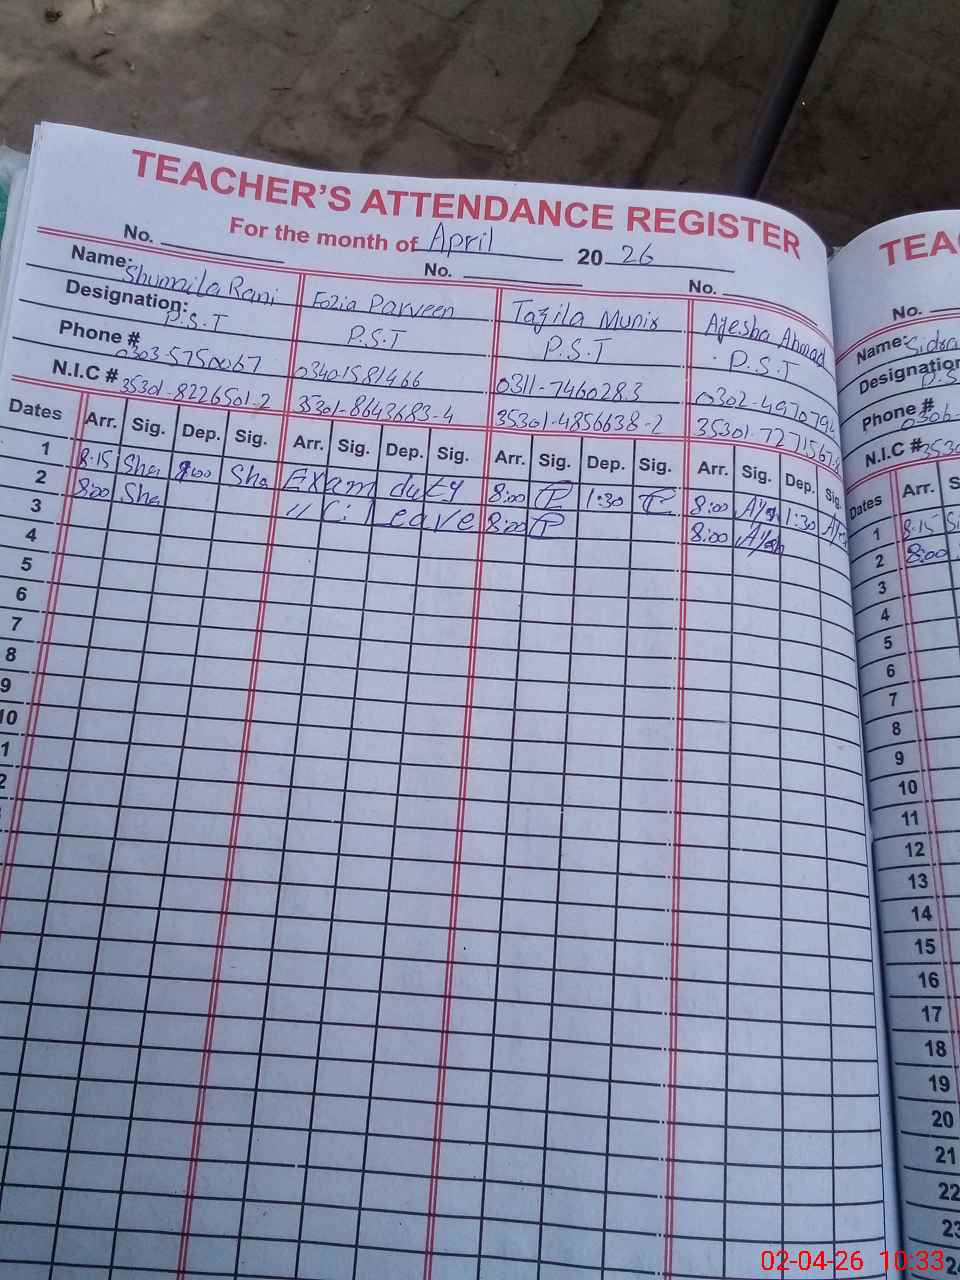 TEACHER'S ATTENDANCE REGISTER
For the month of April 20 26
No. No. No.
Name: Shumaila Rani Fozia Parveen Tazila Munir Ayesha Ahmad
Designation: P.S.T P.S.T P.S.T P.S.T
Phone # 0303-5750067 03401581466 0311-7460283 0302-4970794
N.I.C # 35301-8226501-2 35301-8643683-4 35301-4856638-2 35301-7271567-
Dates Arr. Sig. Dep. Sig. Arr. Sig. Dep. Sig. Arr. Sig. Dep. Sig. Arr. Sig. Dep. Sig.
1 8:15 Sha Sha Exam duty 8:00 1:30 8:00 1:30
2 8:00 Sha " C: Leave 8:00 8:00
3
4
5
6
7
8
9
10
TEA
No.
Name: Sidra
Designation
Phone # 0306-
N.I.C #
Dates Arr.
1 8:15
2 8:00
3
4
5
6
7
8
9
10
11
12
13
14
15
16
17
18
19
20
21
22
23
02-04-26 10:33